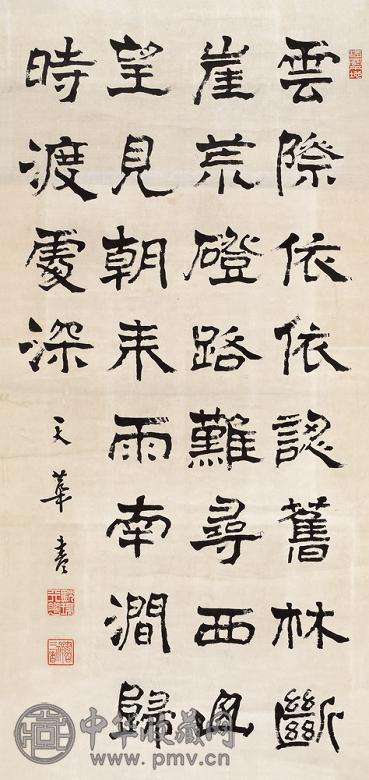 雲際依依認舊林斷
崖荒磴路難尋西山
望見朝來雨南澗歸
時渡處深
天華書
中华收藏网
www.pmv.cn